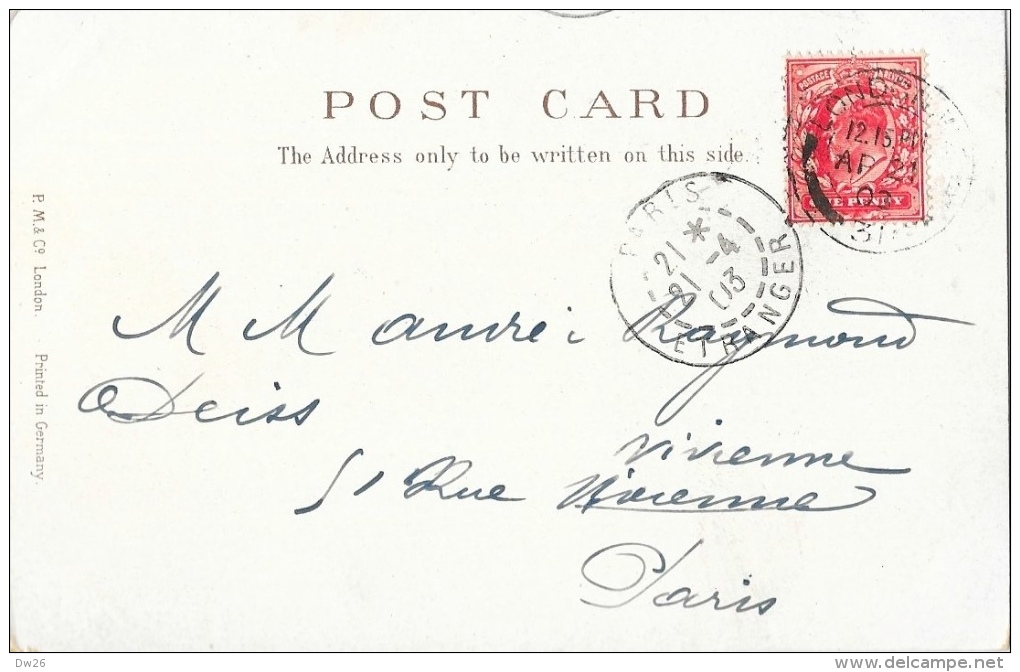 POST CARD
The Address only to be written on this side.
POSTAGE REVENUE
ONE PENNY
LONDON
12.15 PM
AP 21
03
31
PARIS
21 *
21 -4
03
ETRANGER
P. M. & Co London. Printed in Germany.
M M andré i Raymond
Deiss
Vivienne
51 Rue
Paris
Dw26
www.delcampe.net